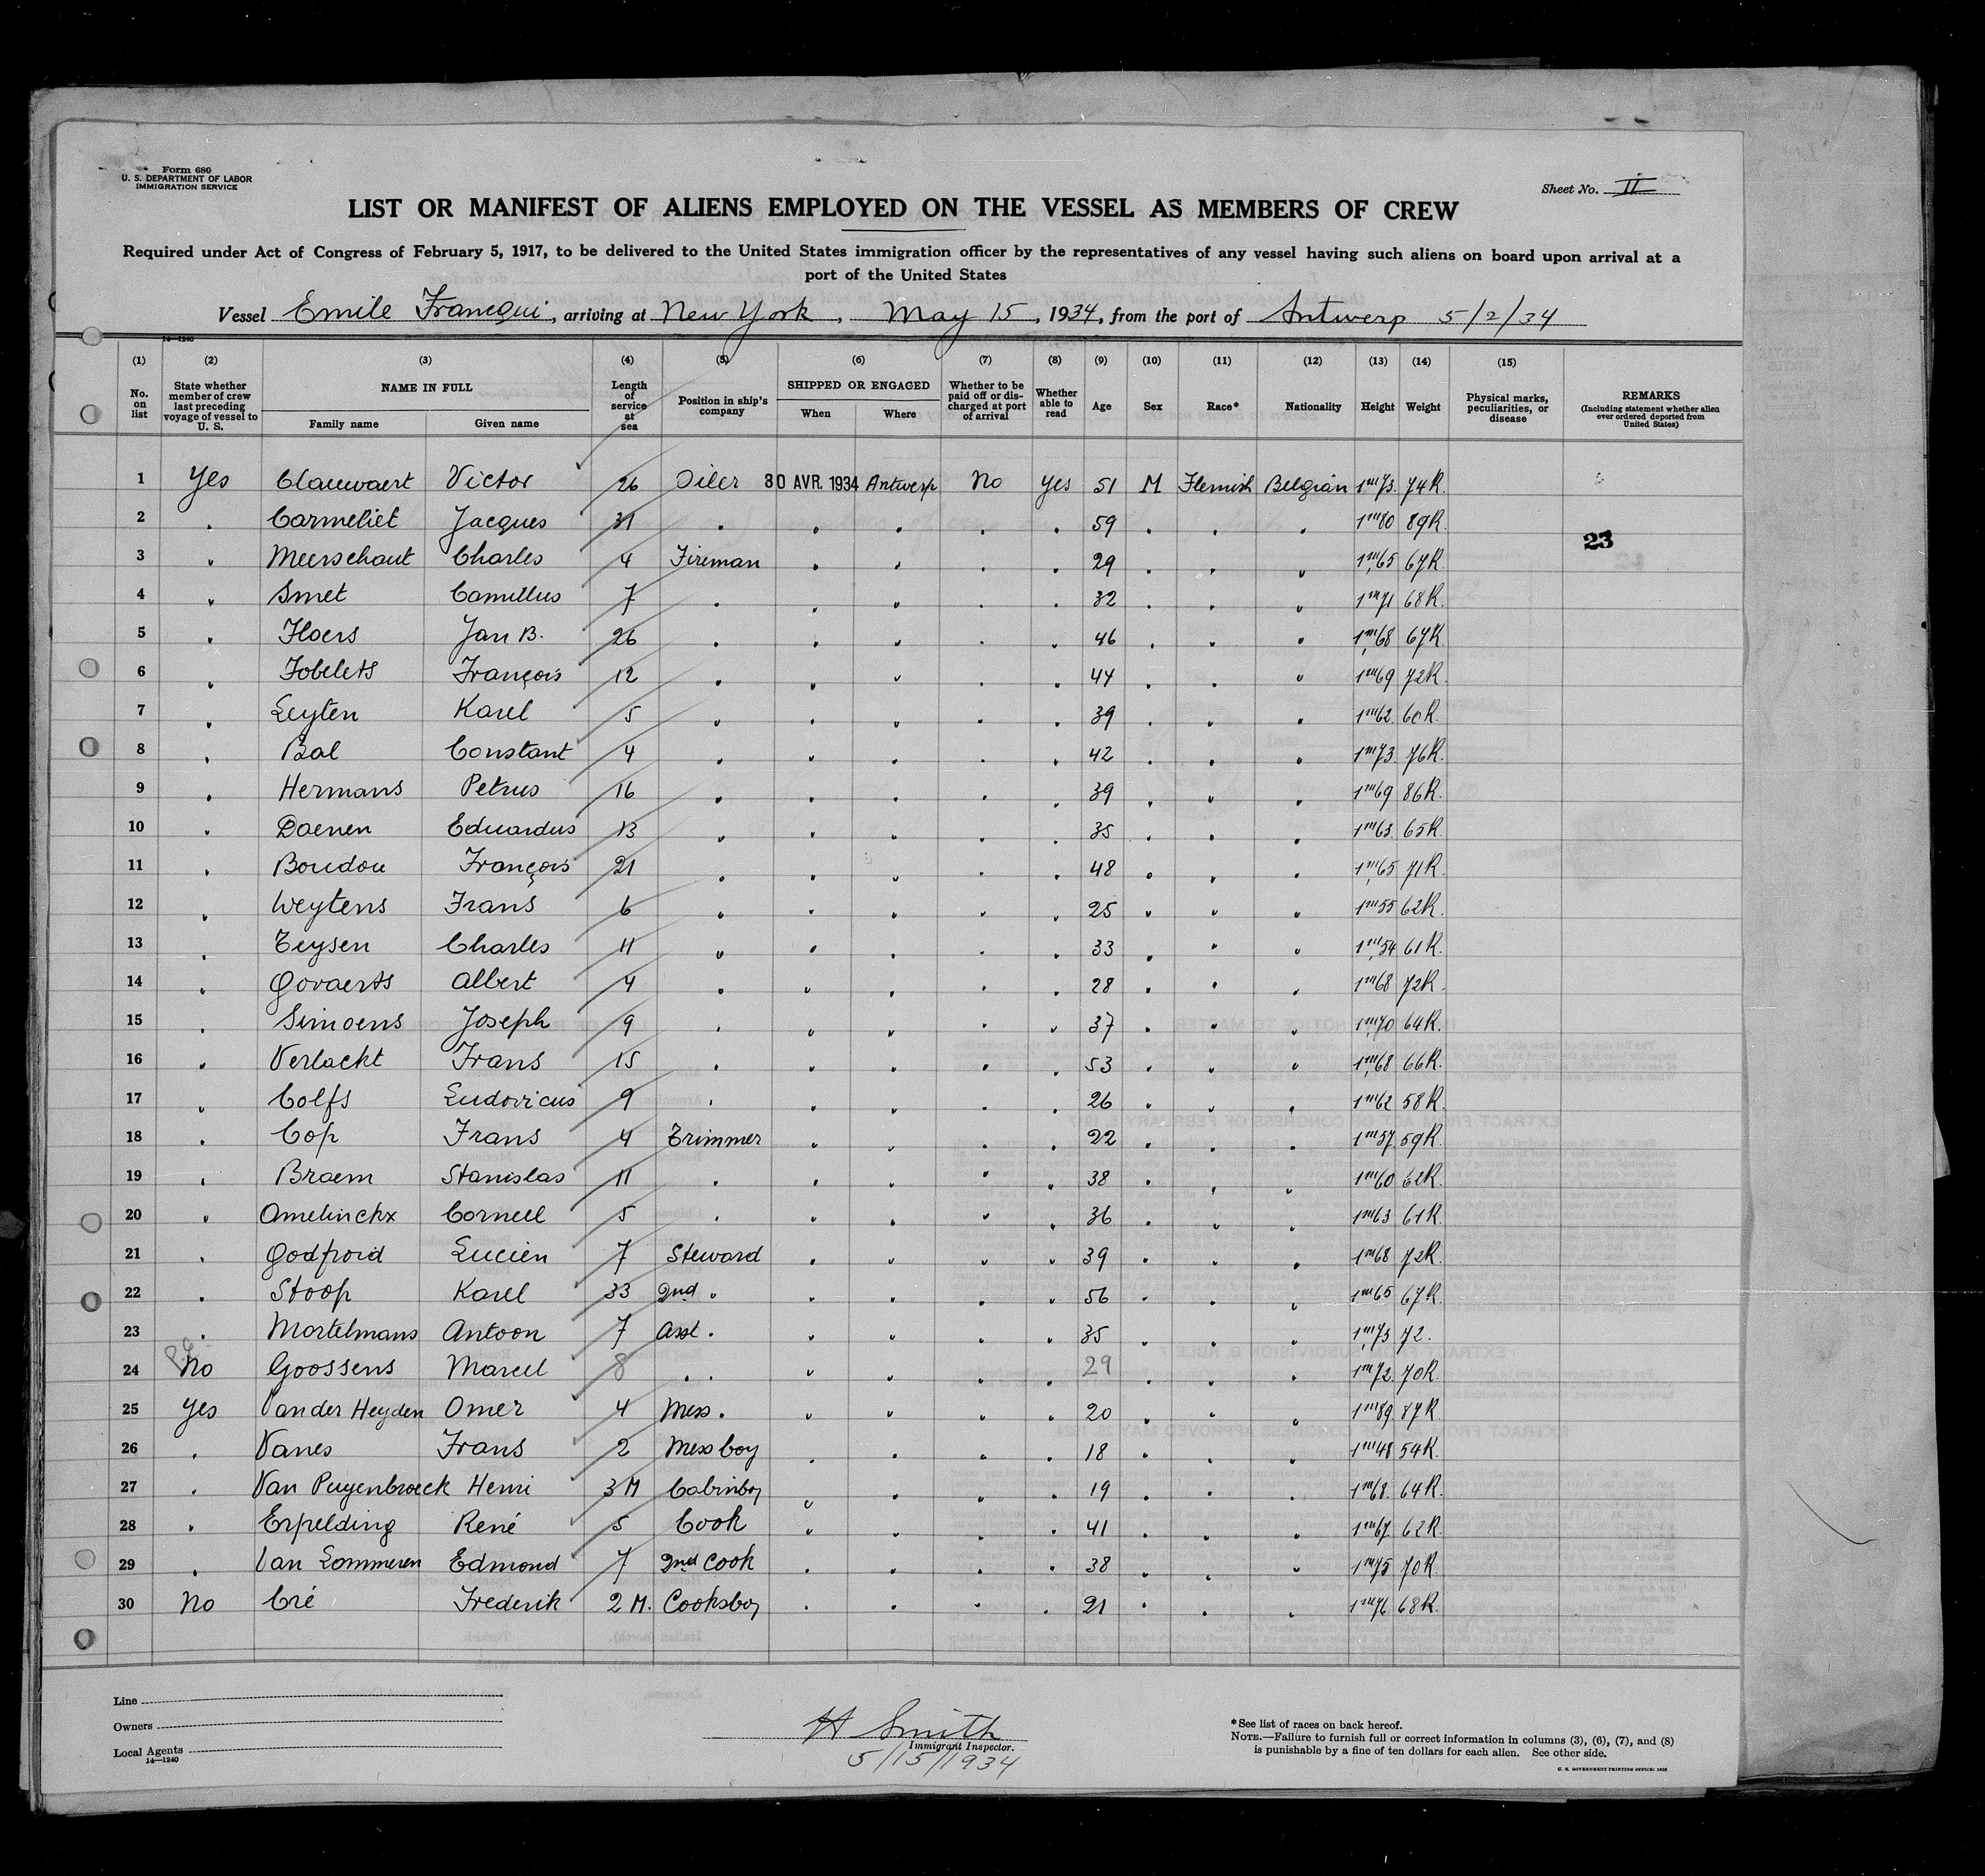 Form 680
U. S. DEPARTMENT OF LABOR
IMMIGRATION SERVICE
Sheet No. II
LIST OR MANIFEST OF ALIENS EMPLOYED ON THE VESSEL AS MEMBERS OF CREW
Required under Act of Congress of February 5, 1917, to be delivered to the United States immigration officer by the representatives of any vessel having such aliens on board upon arrival at a
port of the United States
Vessel Emile Francqui, arriving at New York, May 15, 1934, from the port of Antwerp 5/2/34
14—1240
(1) (2) (3) (4) (5) (6) (7) (8) (9) (10) (11) (12) (13) (14) (15)
No. on list | State whether member of crew last preceding voyage of vessel to U. S. | NAME IN FULL Family name Given name | Length of service at sea | Position in ship's company | SHIPPED OR ENGAGED When Where | Whether to be paid off or discharged at port of arrival | Whether able to read | Age | Sex | Race* | Nationality | Height | Weight | Physical marks, peculiarities, or disease | REMARKS (Including statement whether alien ever ordered deported from United States)
1 Yes Clauwaert Victor 26 Oiler 30 AVR. 1934 Antwerp No Yes 51 M Flemish Belgian 1m73 74K.
2 " Carmeliet Jacques 31 " " " " " 59 " " " 1m80 89K.
23
3 " Meerschaut Charles 4 Fireman " " " " 29 " " " 1m65 67K.
4 " Smet Camillus 7 " " " " " 32 " " " 1m71 68K.
5 " Floers Jan B. 26 " " " " " 46 " " " 1m68 67K.
6 " Fobelets François 12 " " " " " 44 " " " 1m69 72K.
7 " Leyten Karel 5 " " " " " 39 " " " 1m62 60K.
8 " Bal Constant 4 " " " " " 42 " " " 1m73 76K.
9 " Hermans Petrus 16 " " " " " 39 " " " 1m69 86K.
10 " Daenen Eduardus 13 " " " " " 35 " " " 1m63 65K.
11 " Boudou François 21 " " " " " 48 " " " 1m65 71K.
12 " Weytens Frans 6 " " " " " 25 " " " 1m55 62K.
13 " Teysen Charles 11 " " " " " 33 " " " 1m54 61K.
14 " Govaerts Albert 4 " " " " " 28 " " " 1m68 72K.
15 " Simoens Joseph 9 " " " " " 37 " " " 1m70 64K.
16 " Verlackt Frans 15 " " " " " 53 " " " 1m68 66K.
17 " Colfs Ludovicus 9 " " " " " 26 " " " 1m62 58K.
18 " Cop Frans 4 Trimmer " " " " 22 " " " 1m57 59K.
19 " Braem Stanislas 11 " " " " " 38 " " " 1m60 62K.
20 " Amelinckx Corneel 5 " " " " " 36 " " " 1m63 61K.
21 " Godfroid Lucien 7 Steward " " " " 39 " " " 1m68 72K.
22 " Stoop Karel 33 2nd " " " " " 56 " " " 1m65 67K.
23 " Mortelmans Antoon 7 Asst. " " " " 35 " " " 1m73 72.
24 No Goossens Marcel 8 " " " " " " 29 " " " 1m72 70K.
25 Yes Van der Heyden Omer 4 Mess. " " " " 20 " " " 1m89 87K.
26 " Vanes Frans 2 Mess boy " " " " 18 " " " 1m48 54K.
27 " Van Puyenbroeck Henri 3 M Cabinboy " " " " 19 " " " 1m68 64K.
28 " Erpelding René 5 Cook " " " " 41 " " " 1m67 62K.
29 " Van Lommeren Edmond 7 2nd Cook " " " " 38 " " " 1m75 70K.
30 No Cré Frederik 2 M. Cooksboy " " " " 21 " " " 1m76 68K.
Line
Owners
Local Agents
14—1240
H Smith
Immigrant Inspector.
5/15/1934
*See list of races on back hereof.
NOTE.—Failure to furnish full or correct information in columns (3), (6), (7), and (8)
is punishable by a fine of ten dollars for each alien. See other side.
U. S. GOVERNMENT PRINTING OFFICE: 1932